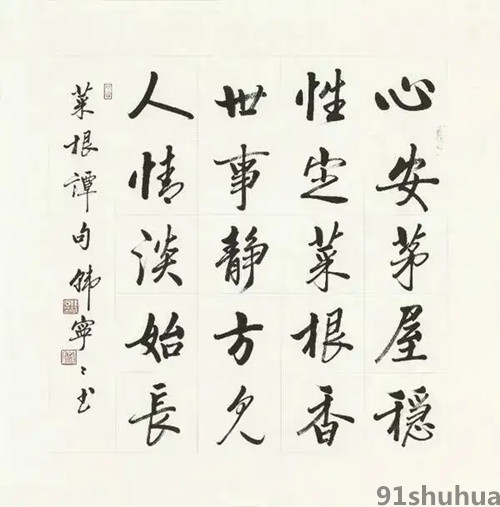 心安茅屋穩
性定菜根香
世事靜方見
人情淡始長
菜根譚句韩寧寧书
91shuhua